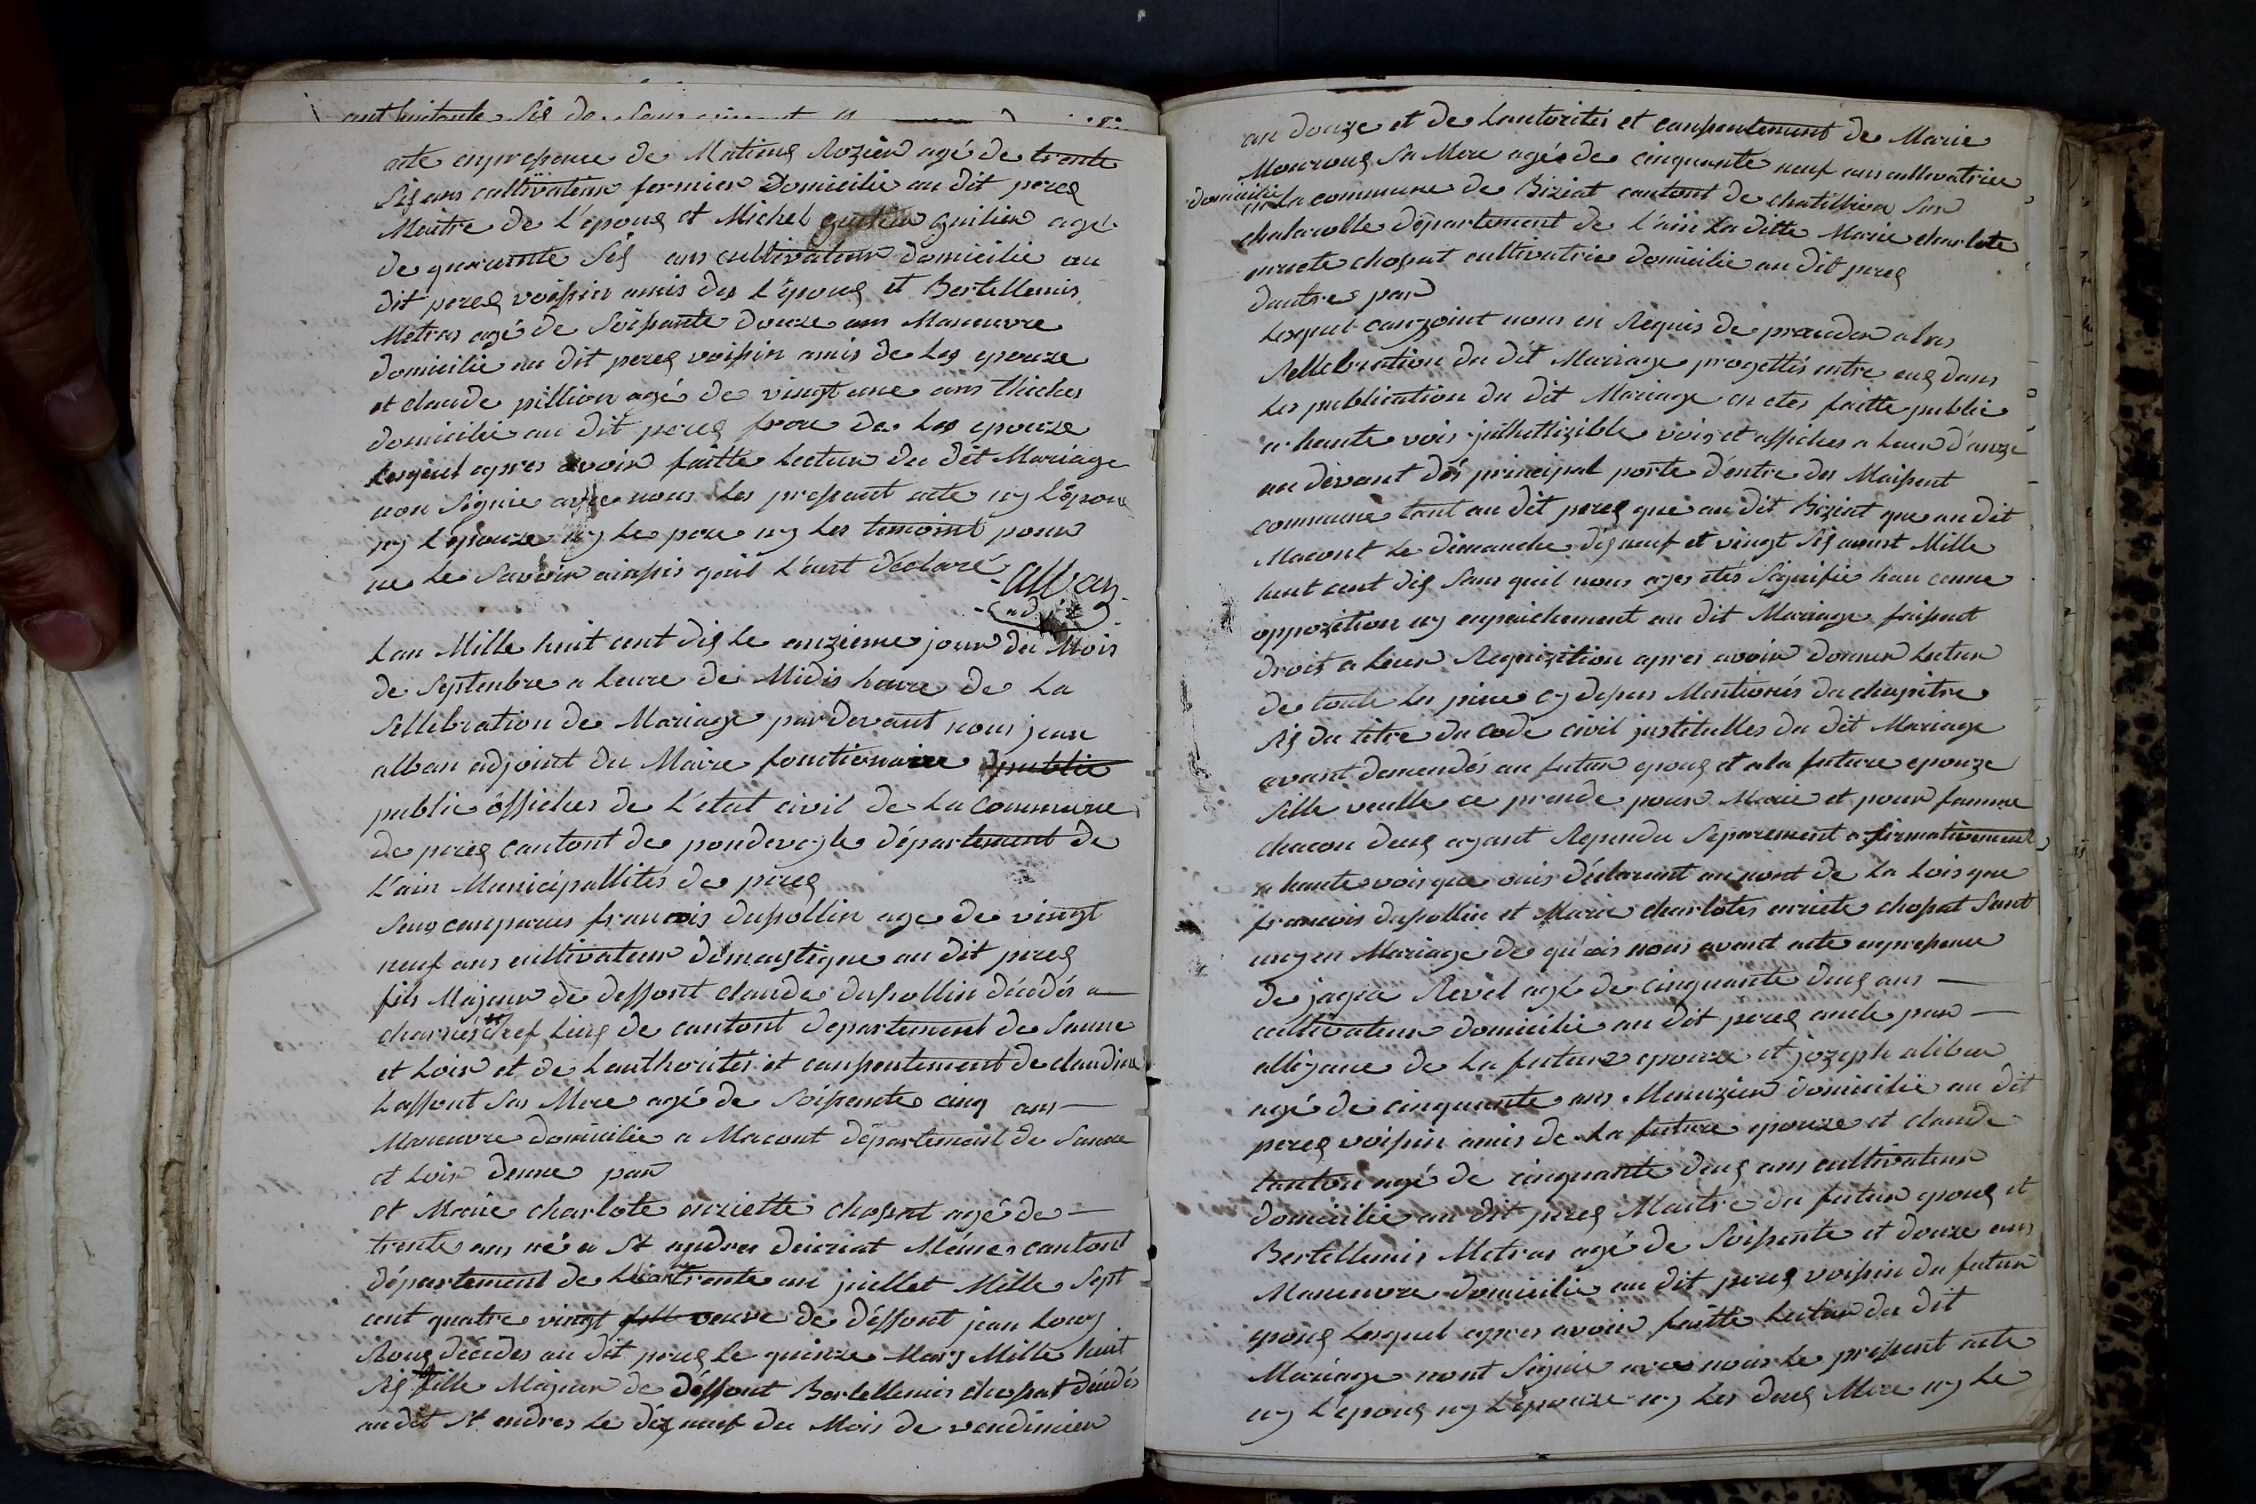 cent huitante sis de
acte enpresence de Matieus Rozier agé de trente
sis ans cultivateur fermier Domicilie au dit perex
Maitre de l'epoux et Michel guilier agé
de quarante sis ans cultivateur domicilie au
dit perex voissin amis des l'époux et Bertellemis
Metras agé de soissante douze ans Maneuvre
domicilie au dit perex voissin amis de las epouze
et claude pillion agé de vingt une ans
domicilie au dit perex frere de las epouze
lesquel apres avoir faitte lectur du dit Mariage
non signie avec nous les pressant acte ny l'époux
ny l'epouze ny le pere ny les temoint pour
ne le savoir ainssis quil l'ont déclaré
alban
adj
Lan Mille huit cent dix le onzieme jour du Mois
de septembre a leure de Midis heure de la
sellebration de Mariage pardevant nous jean
alban adjoint du Maire fonctionaire publie
public officies de l'état civil de la commune
de perex cantont de pondeveyle département de
l'ain Municipallités de perex
sons comparus francois dupollin age de vingt
neuf ans cultivateur domaystique au dit perex
fils Majeur de deffont claude dupollin décédés a
charnés chef lieux de cantont departement de saune
et loir et de lauthorités et conssentement de claudine
laffont sas Mere agé de soissente cinq ans
Maneuvre domicilie a Macont département de saune
et loir d'une par
et Marie charlote enriette chopat agé de
trente ans né a St andres deiriat Mémes cantont
département de lain trente un juillet Mille sept
cent quatre vingt veuve de déffont jean louis
Roux décédes au dit perex le quinze Mars Mille huit
sis fille Majeur de déffont Bertellemis chopat décédés
au dit St andres le dix neuf du Mois de vendimier
an douze et de lautorités et conssentement de Marie
Monroux sa Mere agée de cinquante neuf ans cultivatrice
domicilie en la commune de Biziat cantont de chatillion sur
chalaronne département de l'ain la ditte Marie charlote
enriete chopat cultivatrice domicilie au dit perex
dautre par
Lesquel conjoint nous en Requis de proceder a las
sellebration du dit Mariage progettés entre eux dans
les publication du dit Mariage on etés faitte public
a haute vois jntellizible vois et affiches a leur d'onze
au devant des principal porte d'entre des Maisont
commune tant au dit perex que au dit Biziat que au dit
Macont le dimanche dix neuf et vingt six aoust Mille
huit cent dix sans quil nous ayes étés signifie haucunne
oppozition ny enpaichement au dit Mariage faissent
droit a leur Requizition apres avoir donner lectur
de toute les piece cy desses Mentionés du chapitre
six du titre du code civil jntitulles du dit Mariage
avont demendés au futur epoux et a la future epouze
sille veulle ce prende pour Marie et pour famme
chacon deux ayant Repondu separement afirmativement
a haute vois que ouis déclaront au nont de la lois que
francois dupollin et Marie charlotes enriete chopat sont
uny en Mariage de qu'ois nous avont acte enpresence
de jaque Revel agé de cinquante deux ans
cultivateur domicilie au dit perex oncle par
alliance de la future epouze et jozeph aliban
agé de cinquante ans Menuzier domicilie au dit
perex voissin amis de la future epouze et claude
tanton agé de cinquante deux ans cultivateur
domicilie au dit perex Maitre du futur epoux et
Bertellemis Metras agé de soissente et douze ans
Maneuvre domicilie au dit perex voissin du futur
epoux Lesquel apres avoir faitte lectur du dit
Mariage nont signie avec nous le pressent acte
ny l'epoux ny l'epouze ny les deux Mere ny le